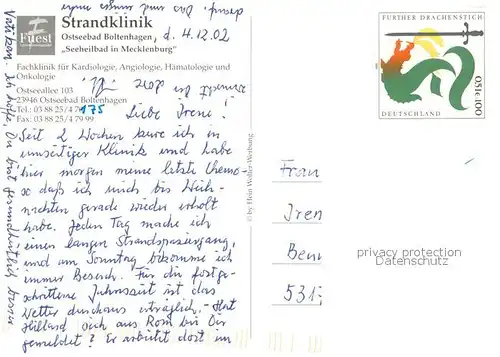 Strandklinik
Ostseebad Boltenhagen
„Seeheilbad in Mecklenburg"
Fuest
d. 4.12.02
Fachklinik für Kardiologie, Angiologie, Hämatologie und
Onkologie
Ostseeallee 103
23946 Ostseebad Boltenhagen
Tel.: 03 88 25/4 7
175
Fax: 03 88 25/4 79 99
Liebe Irene!
Seit 2 Wochen kure ich in
umseitiger Klinik und habe
hier morgen meine letzte Chemo-
so daß ich mich bis Weih-
nachten gerade wieder erholt
habe. Jeden Tag mache ich
einen langen Strandspaziergang,
und am Sonntag bekomme ich
immer Besuch. Für die fortge-
schrittene Jahreszeit ist das
Wetter durchaus erträglich. - Hat
sich aus Rom bei Dir
gemeldet? Er arbeitet dort im
Vatikan. Ich hoffe, Du bist gesundheitlich besser
© by Hein Woller-Werbung
FURTHER DRACHENSTICH
0,51€ 100
DEUTSCHLAND
Frau
Iren
Ben
531
privacy protection
Datenschutz